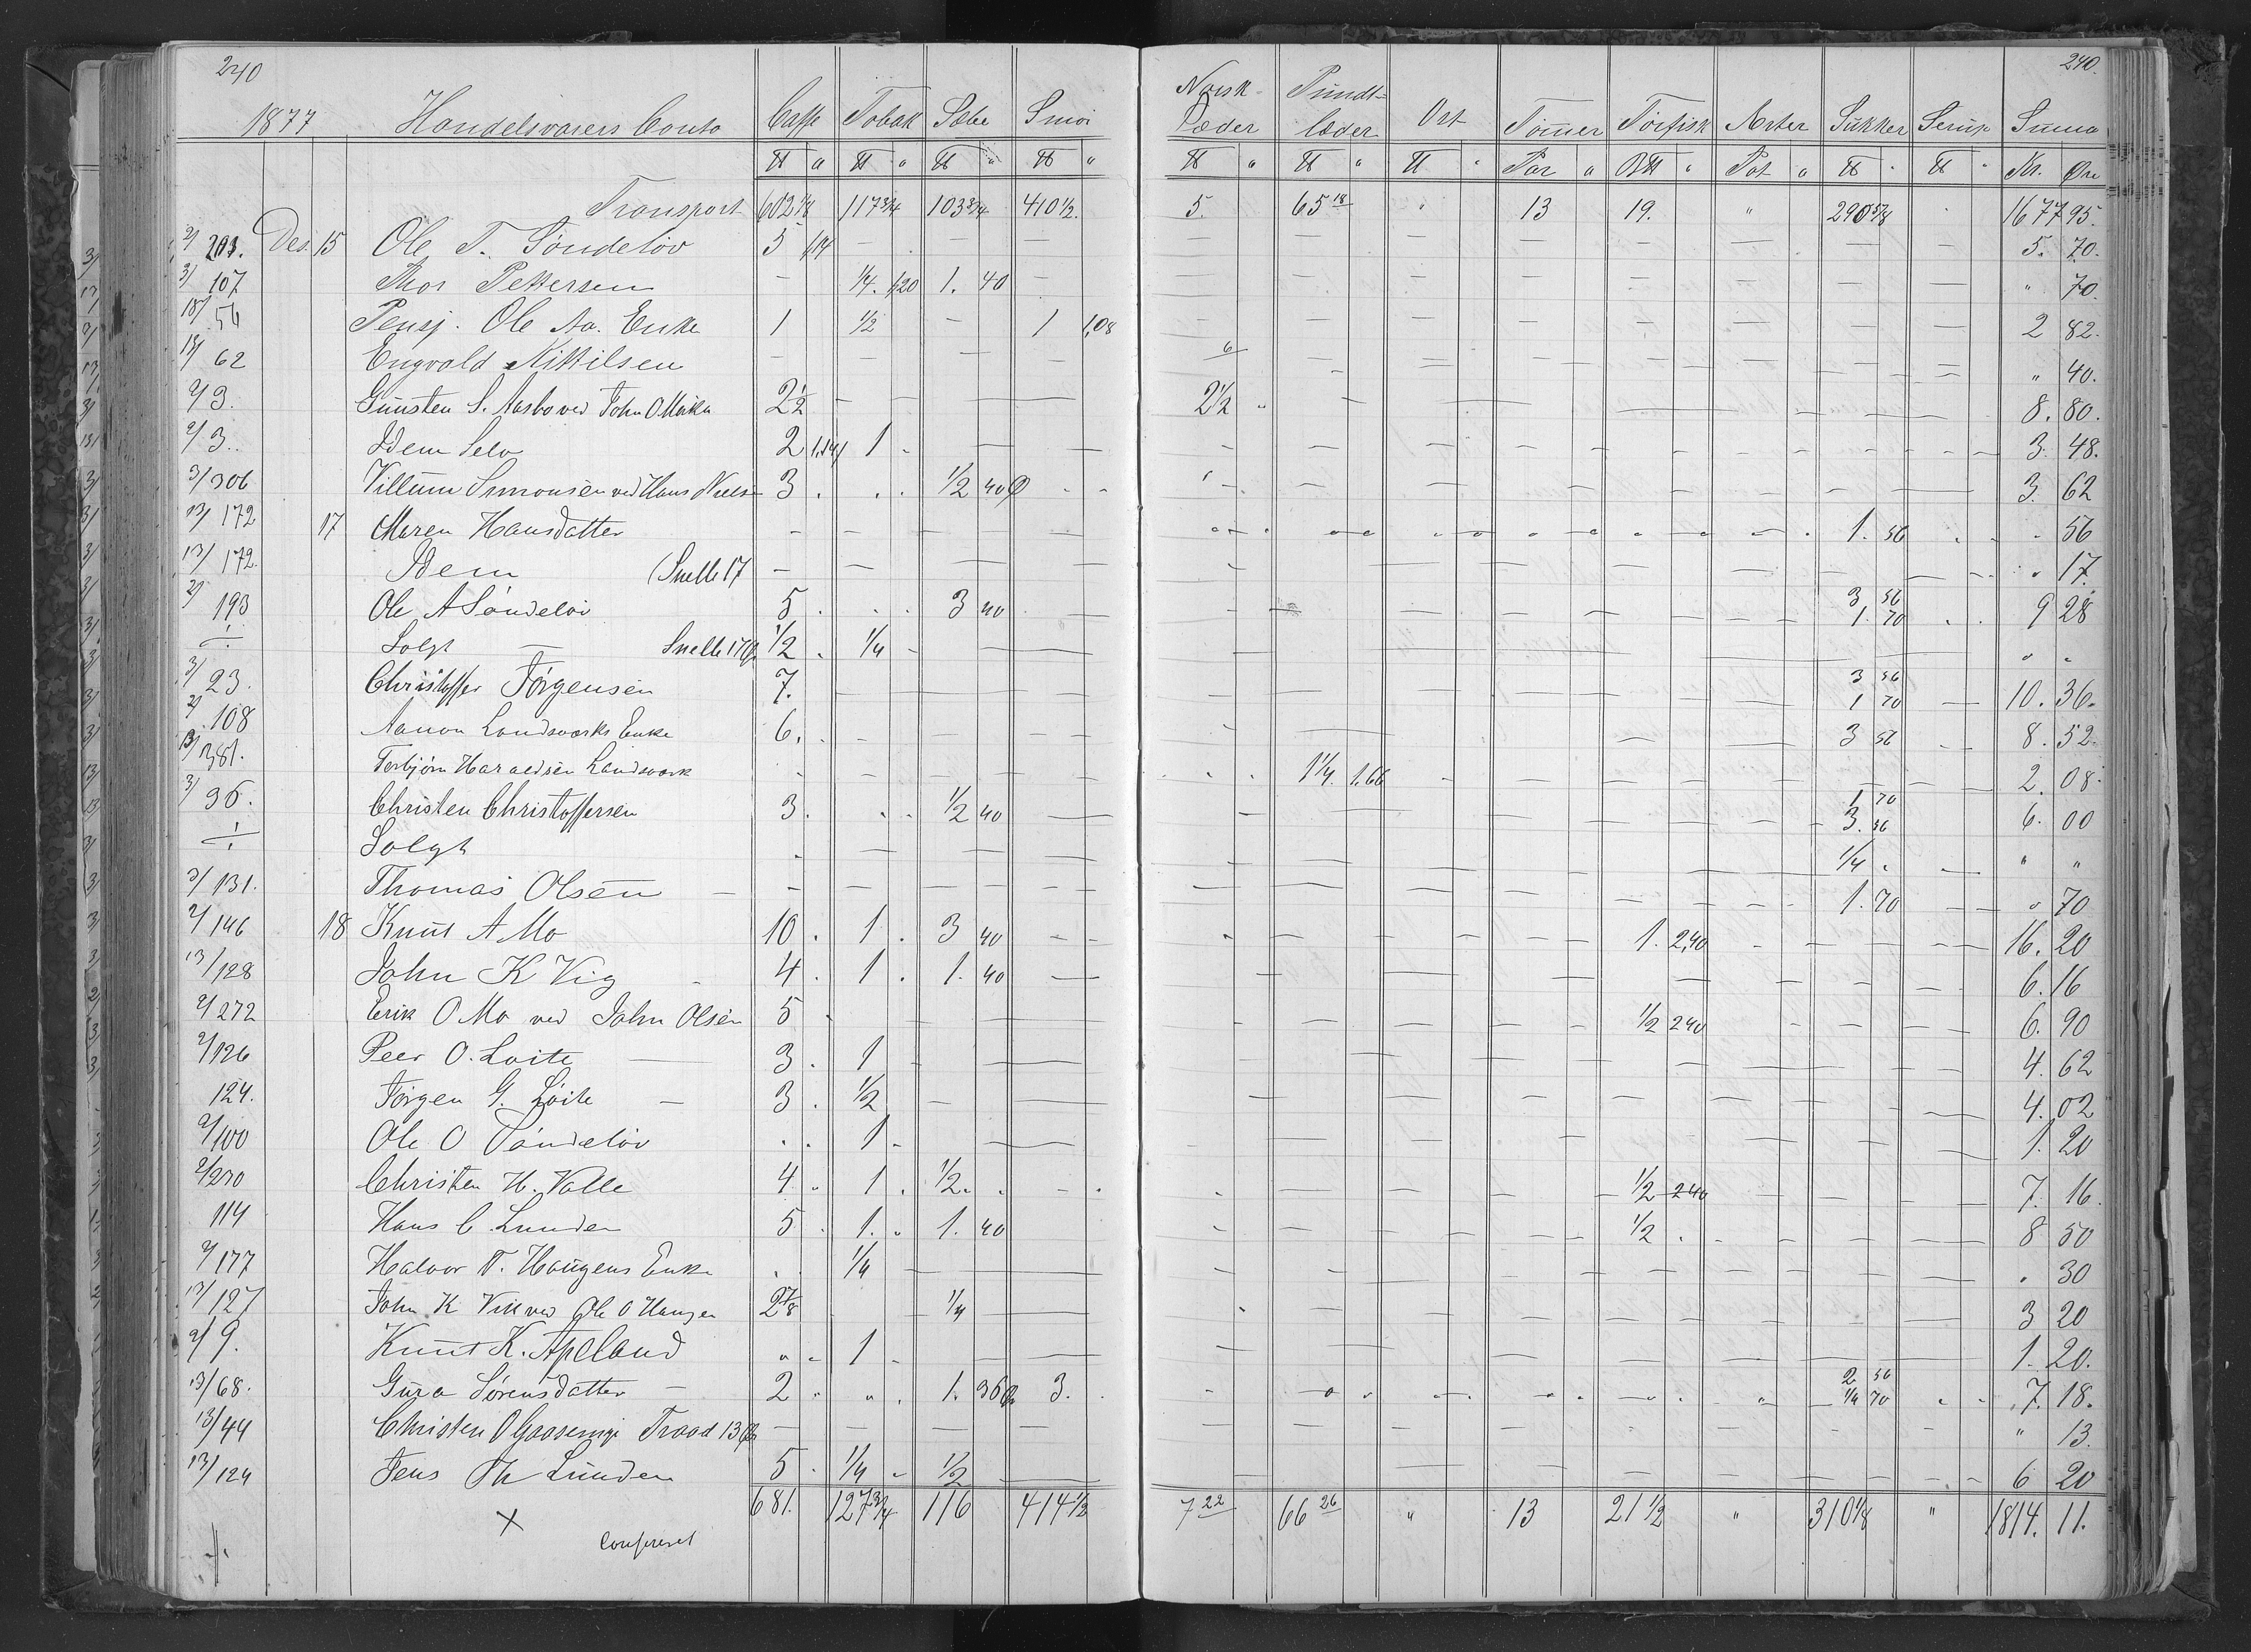 240 240.
1877 Handelsvarers Conto Caffe Tobak Sæbe Smør Norsk Læder Pundt= læder Ost Tømmer Tørfisk Arter Sukker Serup Suma
℔ " ℔ " ℔ " ℔ " ℔ " ℔ " ℔ " Par " B℔ " Pot " ℔ " ℔ " Kr. Øre
Transport 602 1/8 117 3/4 103 3/4 410 1/2. 5. 65 18 " 13 19. " 290 5/8 1677 95.
2/ 203. Des. 15 Ole T. Søndeløv 5 1,14 — — — 5. 70.
3/ 107 Thor Pettersen — 1/4. 1,20 1. 40 — " 70.
18/ 56 Pensj. Ole Aa. Enke 1 1/2 — 1 1,08 2 82.
18/ 62 Engvald Kittilsen — — — 6 " 40.
2/ 3. Gunsten S. Aasbo ved John O Moika 2 1/2 — — 2 1/2 8. 80.
2/ 3.. Idem Selv 2 1.14 1 — — 3. 48.
3/ 306 Villum Simonsen ved Hans Niels 3. 1/2 40 Ø 3. 62
13/ 172 17 Maren Hansdatter — — — — 1. 56 56
13/ 172. Idem (Snelle 17 — — — — " 17.
2/ 193 Ole A Søndeløv 5. 3 40 3 56 1. 70 9 28
÷ Solgt — Snelle 17 1/2 1/4 — — " "
3/ 23. Christoffer Jørgensen 7. 3 56 1 70 10. 36.
2/ 108 Aanon Landsværks Enke 6. 3 56 8. 52.
13/ 381. Torbjørn Haraldsen Landsværk 1 1/4. 1.66 2. 08.
3/ 36. Christen Christoffersen 3. 1/2 40 1 70 3. 56 6. 00
÷ Solgt 1/4 " "
3/ 131. Thomas Olsen — — — — 1. 70 " 70
2/ 146 18 Knut A Mo 10. 1. 3 40 1. 2,40 16. 20
13/ 128 John K Vig 4. 1. 1. 40 6. 16
2/ 272 Erik O Mo ved John Olsen 5 1/2 240 6. 90
2/ 126 Peer O. Loite — 3. 1 4. 62
124. Jørgen G. Løite — 3. 1/2 4. 02
2/ 100 Ole O Søndeløv 1. 1. 20
2/ 230 Christen H. Valle 4. 1. 1/2. 1/2 240 7. 16
114 Hans C. Lunden 5. 1. 1. 40 1/2 8 50
2/ 177 Halvor T. Haugens Enke 1/4 " 30
13/ 127 John K Vik ved Ole O Haugen 2 7/8 1/4 3 20
2/ 9. Knut K. Apeland " " 1 1. 20.
13/ 68. Gura Sørensdatter — 2 " 1. 36 3. 2 56 1/4 70 7. 18.
13/ 44 Christen O Gaasemyr Traad 13 — — — " 13.
13/ 124 Jens Th Lunden 5. 1/4 1/2 — 6 20
681. 127 3/4 116 414 1/2 7 22 66 26 " 13 21 1/2 " 310 1/8 " 1814. 11.
×
Confereret